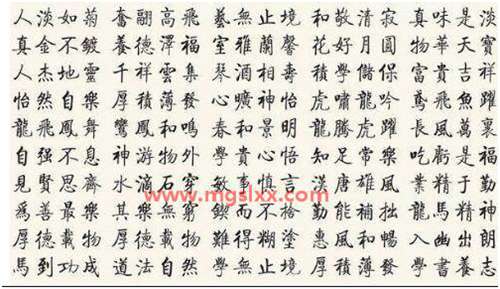 人淡如菊 奮翮高飛 藝無止境 和敬清寂 真味是淡
真金不鍍 養德澤福 室雅蘭馨 花好月圓 物華天寶
人杰地靈 千祥雲集 琴酒相壽 學儲保 富貴吉祥
怡然自樂 厚積薄發 曠神怡 虎嘯龍吟 鳶飛魚躍
龍飛鳳舞 鸞鳳和鳴 春和景明 龍騰虎躍 長風萬裏
自强不息 神游物外 學貴心悟 知足常樂 吃虧是福
見賢思齊 水滴石穿 敏事慎言 漢唐雄風 業精于勤
www.mgslxx.com
爲善最樂 其樂無窮 鍥而不捨 勤能補拙 龍馬精神
厚德載物 厚德載物 難得糊塗 惠風和暢 入幽出朗
馬到功成 道法自然 學無止境 厚積薄發 學書養志